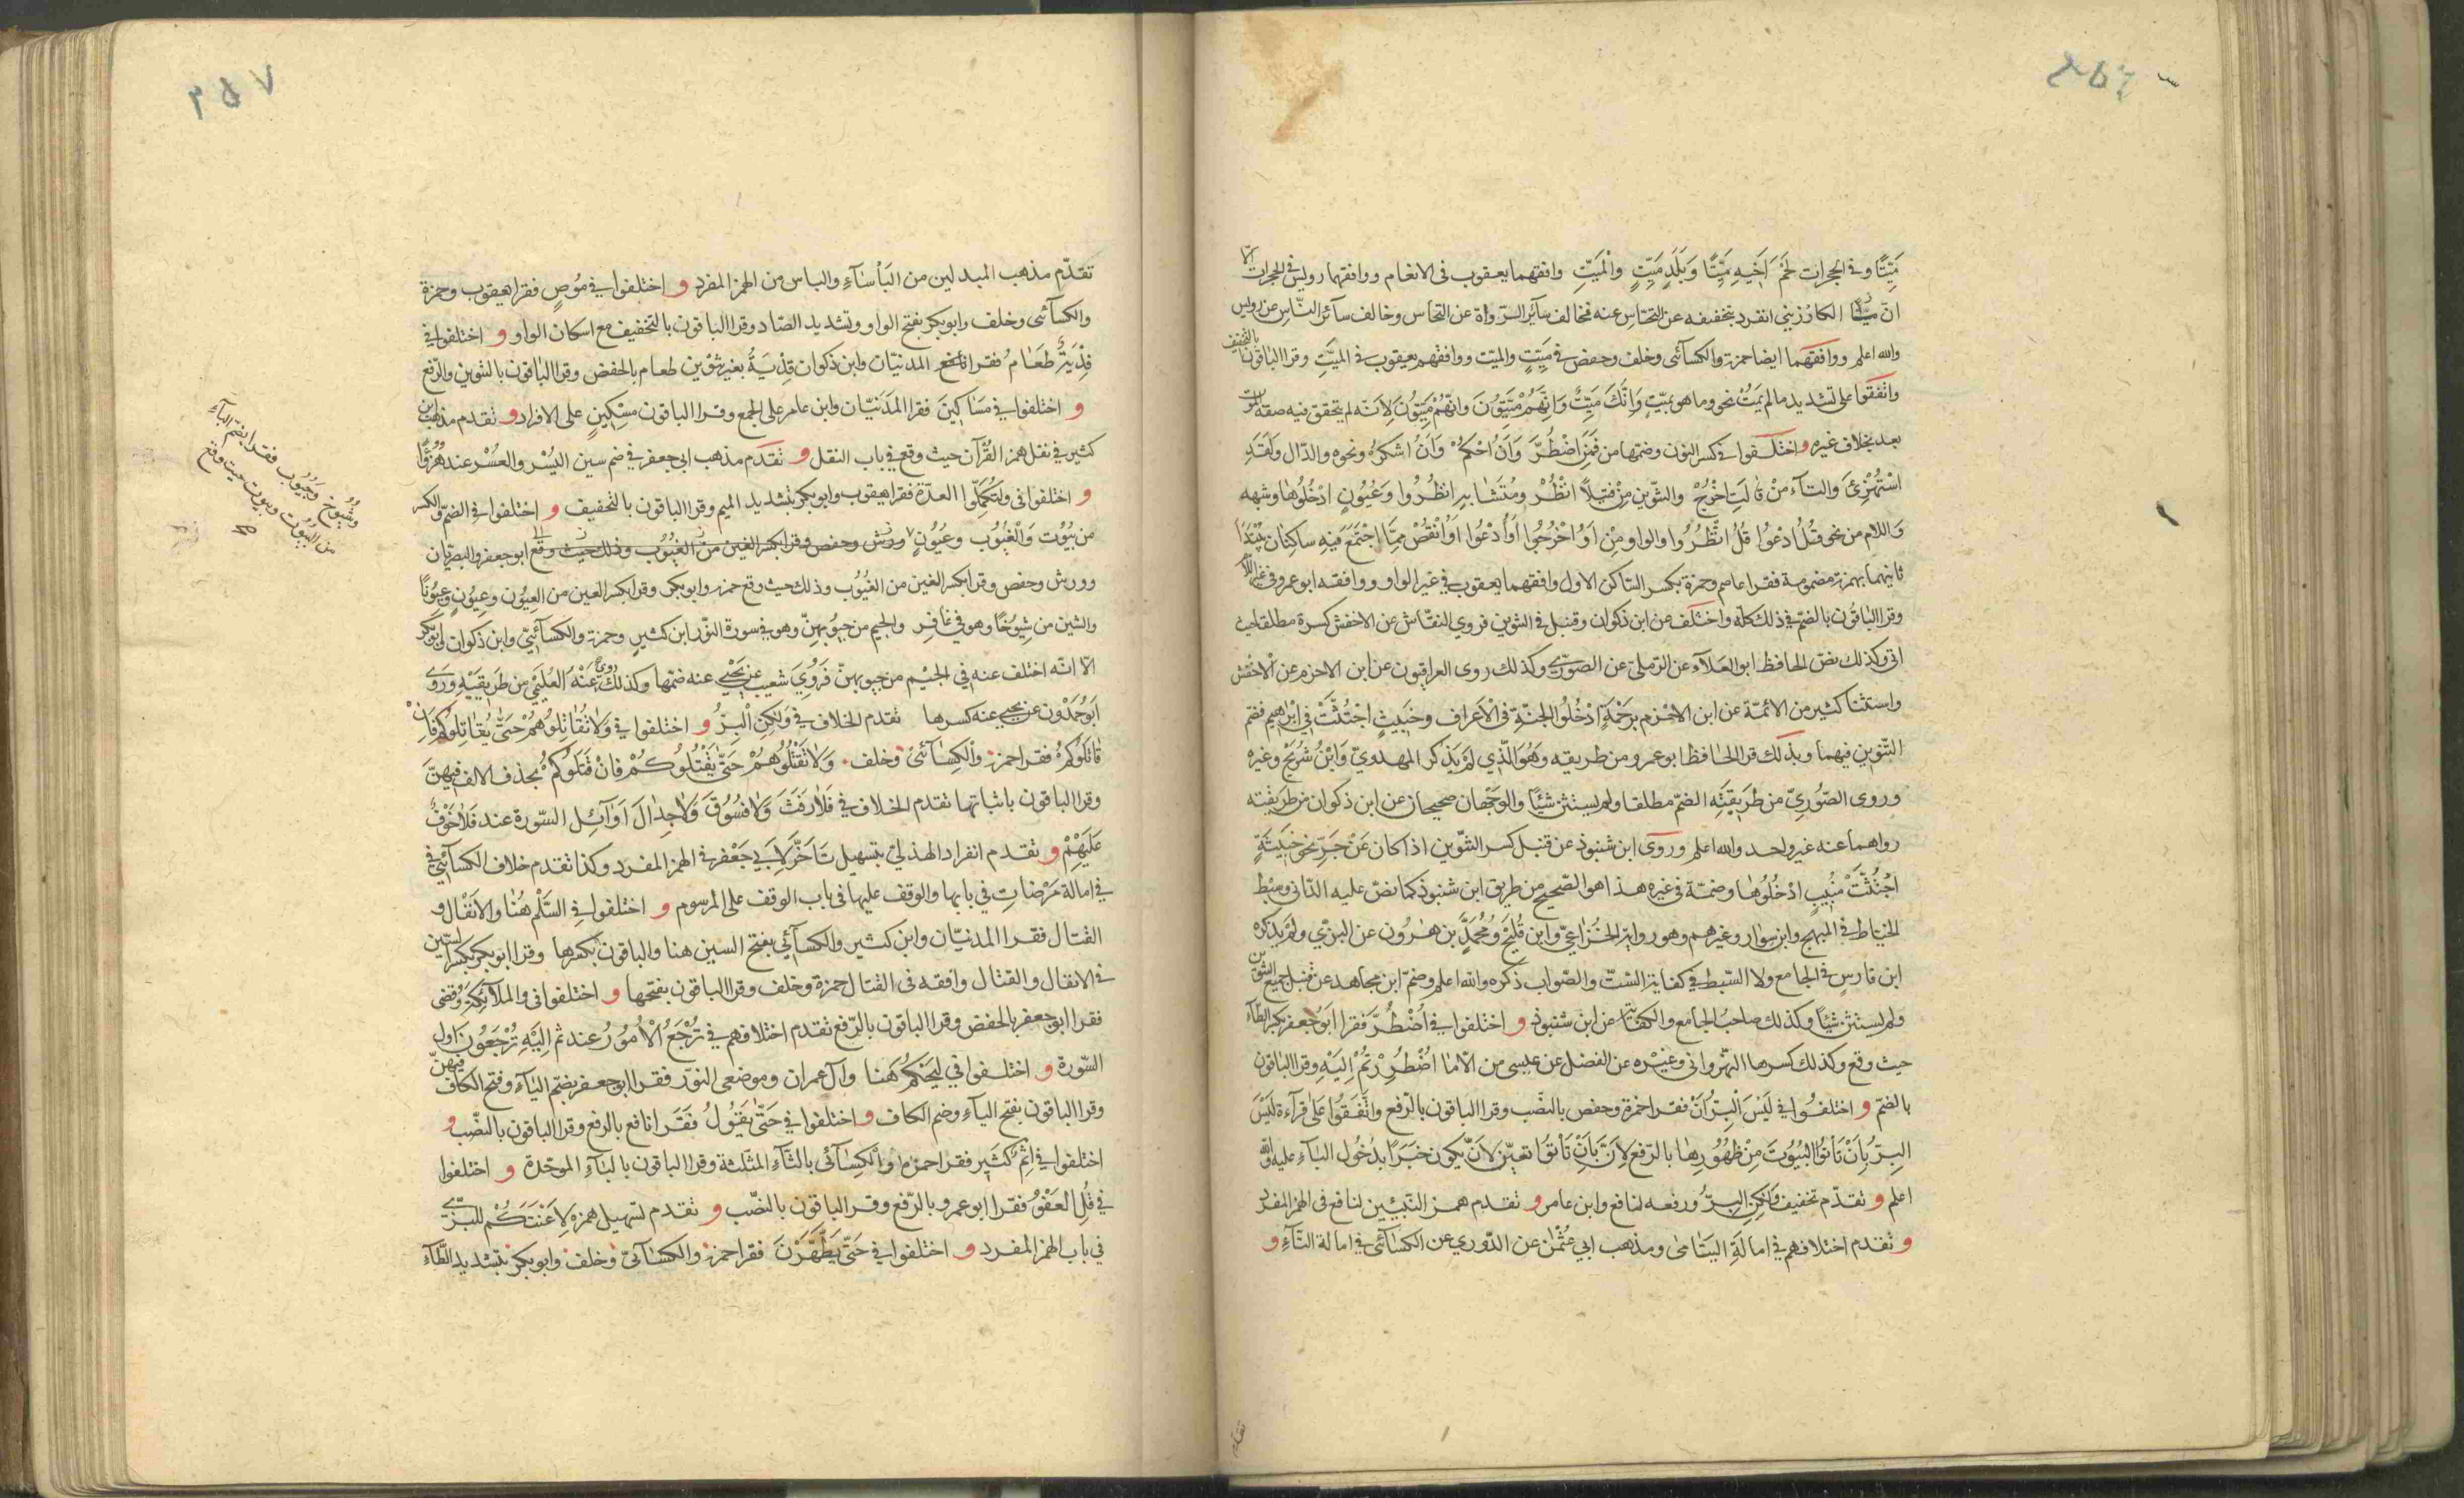 مَيْتًا وفي الحجرات لَحْمَ اَخِيهِ مَيْتًا وَبَلَدٍ مَيِّتٍ وَالْمَيِّتِ وافقهما يعقوب في الانعام ووافقهما رويس في الحجرات الّا
انّ الكارزيني انفرد بتخفيفه عن النخاس عنه فخالف سآئر الرواة عن النخاس وخالف سآئر النّاس عن رويس
والله اعلم ووافقهما ايضا حمزة والكسآئى وخلف وحفص في مَيِّتٍ والميّت ووافقهم يعقوب في الميّتِ وقرا الباقون بالتخفيف
واتفقوا على تشديد مالم يَمُتْ نحو وما هو بميّتٍ وَاِنَّكَ مَيِّتٌ وَاِنَّهُمْ مَّيِّتُونَ لِاَنّه لم يتحقق فيه صفة الموت
بعد بخلاف غيره واختلفوا في كسر النون وضمها من فَمَنِ اضْطُرَّ وَاَنِ احْكُمْ وَاَنِ اشْكُرْ ونحوه والدّال وَلَقَدِ
اسْتُهْزِئَ والتآء مِنْ قالَتِ اخْرُجْ والتنوين مِنْ فَتِيلًا انْظُرْ ومُتَشَابِهٍ انظُرُوا وَعُيُونٍ ادْخُلُوهَا وشبهه
وَاللام من نحو قُلُ ادْعُوا قُلُ انْظُرُوا والواو مِنْ اَوُ اخْرُجُوا اَوُ ادْعُوا اَوُ انْقُصْ مِمَّا اجْتَمَعَ فيهِ ساكنان يُبْتَدَأ
ثانيهما بهمزة مضمومة فقرا عاصم وحمزة بكسر الساكن الاول وافقهما يعقوب في غير الواو ووافقه ابو عمرو في غير اللام
وقرا الباقون بالضمّ في ذلك كله واختلف عن ابن ذكوان وقنبل في التنوين فروى النقّاش عن الاخفش كسره مطلقا حيث
اتى وكذلك نصّ الحافظ ابو العلآء عن الرّملىّ عن الصوريّ وكذلك روى العراقيون عن ابن الاحرم عن الاخفش
واستثنا كثير من الائمّة عن ابن الاخرم بِرَحْمَةٍ ادْخُلُوا الجنّة في الاعراف وخَبِيثَةٍ اجْتُثَّتْ في ابْراهيم فضم
التنوين فيهما وبذلك قرا الحافظ ابو عمرو من طريقه وَهُوَ الَّذي لَمْ يَذكر المهدويّ وَابْنُ شُرَيْحٍ وغيره
وروى الصّوريّ من طريقَيْهِ الضمّ مطلقا ولم يستثن شيئًا والوجهان صحيحان عن ابن ذكوان من طريقيه
رواهما عنه غير واحد والله اعلم وروى ابن شنبوذ عن قنبل كسر التنوين اذا كان عَنْ جَرٍّ نحو خَبِيثَةٍ
اجْتُثَّتْ مُنِيبٍ ادْخُلُوهَا وضمّه في غيره هذا هو الصّحيح من طريق ابن شنبوذ كما نصّ عليه الدّانى وسبْط
الخياط في المبهج وابن سوار وغيرهم وهو رواية الخُزاعيّ وابن فُليح ومُحمَّد بن هٰرُون عن البزّي ولم يذكره
ابن فارس في الجامع ولا السّبط في كفاية الستّ والصّواب ذكره والله اعلم وضم ابن مجاهد عن قنبل جميع التنوين
ولم يستثن شيئًا وكذلك صاحب الجامع والكفاية عن ابن شنبوذ و اختلفوا في اضْطُرَّ فقرا ابو جعفر بكسر الطّآء
حيث وقع وكذلك كسرها النهروانى وغيره عن الفضل عن عيسى من الّا مَا اضْطُرِرْتُمْ اِلَيْهِ وقرا الباقون
بالضم و اختلفُوا في لَيْسَ الْبِرَّ اَنْ فقرا حمزة وحفص بالنصَب وقرا الباقون بالرّفع واتّفقُوا عَلى قرآءة لَيْسَ
البِرُّ بِاَنْ تَأتُوا الْبُيُوتَ مِنْ ظُهُورِهَا بالرّفع لِاَنَّ بِاَنْ تَأتُوا تعيّن لِاَنْ يكون خبَرًا بدُخُول البآء عليه والله
اعلم و تقدّم تخفيف وَلٰكِنِ البِرُّ ورفعه لنافع وابن عامر و تقدم همز النّبيّين لنافع في الهمز المفرد
و تقدم اختلافهم في امالَةِ اليَتَامىٰ ومذهب ابي عثمٰن عن الدّوري عن الكسَآئى في امالة التّآءِ و
تقدّم
٢٥٧
تقدّم مذهب المبدلين من البَأْسَآءِ والباس من الهمز المفرد و اختلفوا في مُوصٍ فقرا يعقوب وحمزة
والكسآئى وخلف وابو بكر بفتح الواو وتشديد الصّاد وقرا الباقون بالتخفيف مع اسكان الواو و اختلفوا في
فِدْيَةٌ طَعَامُ فقرا المدنيّان وابن ذكوان فِدْيَةُ بغير تنوين طعام بالخفض وقرا الباقون بالتنوين والرّفع
و اختلفوا في مَسَاكِينَ فقرا المَدَنيّان وابن عامر على الجمع وقرا الباقون مِسْكِينٍ على الافراد و تقدم مذهب ابن
كثير في نقل همز القُرْآن حيث وقع في باب النقل و تقدم مذهب ابي جعفر في ضم سين اليُسْر والعُسْر عند هُزُوًا
و اختلفوا في ولتُكمِلوا العدّة فقرا يعقوب وابو بكر بتشديد الميم وقرا الباقون بالتخفيف و اختلفوا في الضمّ والكسر
من بُيُوت وَالْغُيُوب وعُيُونٍ وورش وحفص وقرا بكسر الغين من الغُيُوب وذلك حيث وقع ابو جعفر والبصريّان
وورش وحفص وقرا بكسر الغين من الغُيُوب وذلك حيث وقع حمزة وابو بكر وقرا بكسر العين من العِيُون وعِيُونٍ وعِيُونًا
والشين من شِيُوخًا وهو في غَافِر والجيم من جِيُوبِهِنّ وهو في سورة النّور ابن كثير وحمزة والكسآئيّ وابن ذكوان وابو بكر
الّا انّه اختلف عنه في الجيم من جيوبهنّ فَرَوى شعيب عن يَحْيى عنه ضمّها وكذلك روى عَنْهُ العُلَيْمي من طريقَيْه وروى
ابَو حَمْدُون عن يحيى عنه كسرها تقدم الخلاف في وَلٰكِنِ الْبِرُّ و اختلفوا في وَلَا تُقاتِلُوهُمْ حَتَّى يُقَاتِلُوكُمْ فَاِنْ
قَاتَلُوكُمْ فقرا حمزة والكِسَآئىُّ وخلف وَلَا تَقْتُلُوهُمْ حَتَّى يَقْتُلُوكُمْ فَاِنْ قَتَلُوكُمْ بحذف الالف فيهِنّ
وقرا الباقون باثباتها تقدم الخلاف في فَلَا رَفَثَ وَلَا فُسُوقَ وَلَا جِدَالَ اَوَآئِل السّورة عند فَلَا خَوْفٌ
عَلَيْهِمْ و تقدم انفراد الهذليّ بتسهيل تَاَخَّرَ لِاَبي جَعْفر في الهمز المفرد وكذا تقدم خلاف الكسآئيّ في
في امالة مَرْضَاتِ في بابها والوقف عليها في باب الوقف على المرسوم و اختلفوا في السَّلْم هُنَا والانفال و
القتال فقرا المدنيّان وابن كثير والكسآئى بفتح السين هنا والباقون بكسرها وقرا ابو بكر بكسر السّين
في الانفال والقتال وافقه في القتال حمزة وخلف وقرا الباقون بفتحها و اختلفوا في والملآئِكَةُ وَقُضى
فقرا ابو جعفر بالخفض وقرا الباقون بالرّفع تقدم اختلافهم في تُرْجَعُ الْاُمُوُرُ عند ثم اِلَيْهِ تُرْجَعُونَ اول
السّورة و اختلفوا في لِيَحْكُمَ هنا وآل عمران وموضعى النور فقرا ابو جعفر بضمّ اليآء وفتح الكاف فيهنّ
وقرا الباقون بفتح اليآءِ وضم الكاف و اختلفوا في حَتّى يَقُولُ فَقَرا نافع بالرفع وقرا الباقون بالنصّب و
اختلفوا في اِثْمٌ كَثير فقرا حمزة والكسآئى بالثآءِ المثلّثة وقرا الباقون بالبآءِ الموحّدة و اختلفوا
في قُلِ العَفْوُ فقرا ابو عمرو بالرّفع وقرا الباقون بالنصّب و تقدم تسهيل همزة لَاَعْنَتَكُمْ للبزّي
في باب الهمز المفرد و اختلفوا في حَتَّى يَطَّهَّرْنَ فقرا حمزة والكسَآئىّ وخلف وابو بكر بتشديد الطّآء
وشُيُوخ وجُيُوب فقرا بضمّ البآءِ
من البُيُوت وبيوت حيث وقع
صح